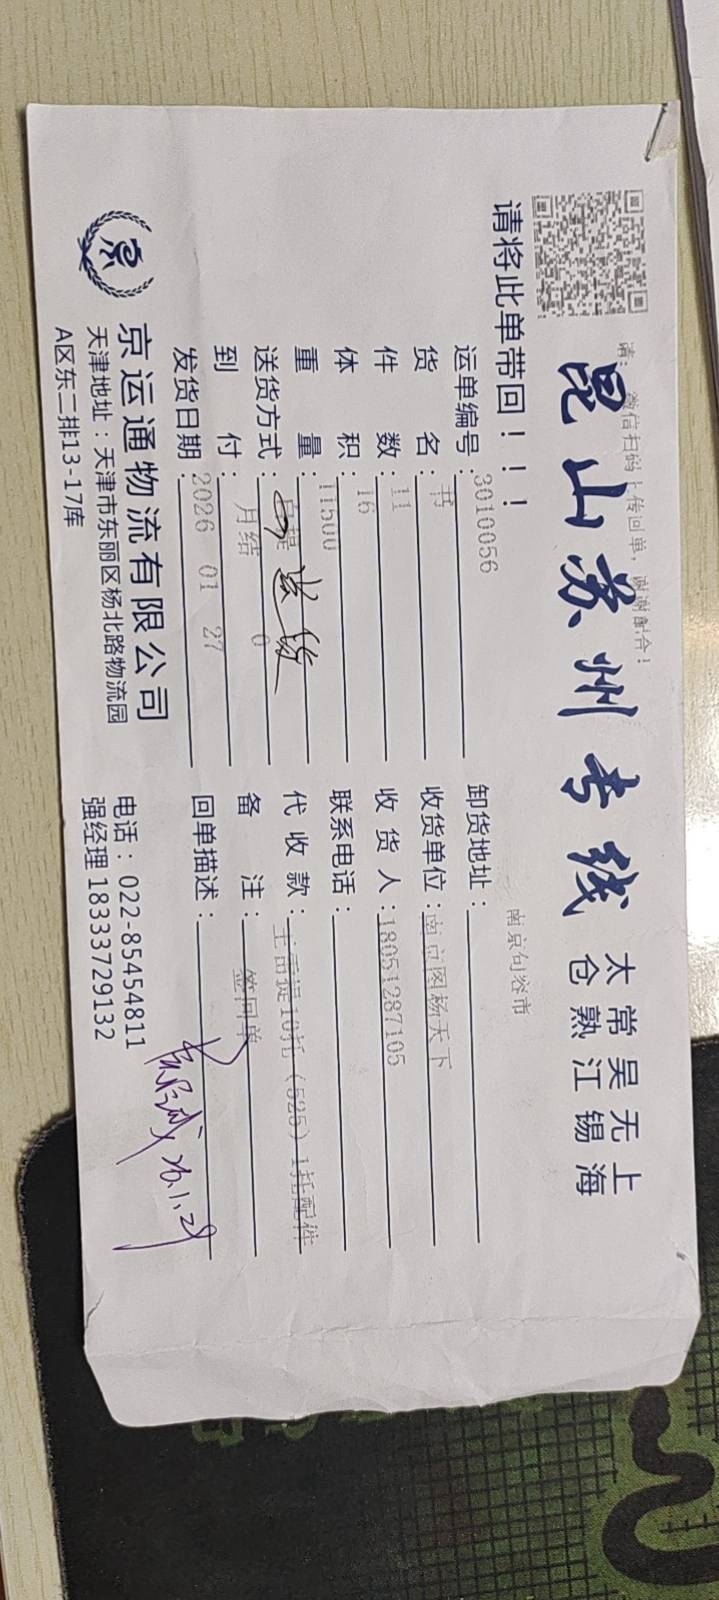 请:微信扫码上传回单,谢谢配合!
昆山苏州专线
太仓 常熟 吴江 无锡 上海
请将此单带回!!!
南京句容市
运单编号:3010056
卸货地址:
货名:书
收货单位:南京图杨天下
件数:11
收货人:18051287105
体积:16
联系电话:
重量:11500
代收款:
送货方式:自提 送货
备注:
到付:月结 0
签回单
发货日期:2026 01 27
回单描述:
26.1.29
京运通物流有限公司
天津地址:天津市东丽区杨北路物流园
A区东二排13-17库
电话:022-85454811
强经理 18333729132